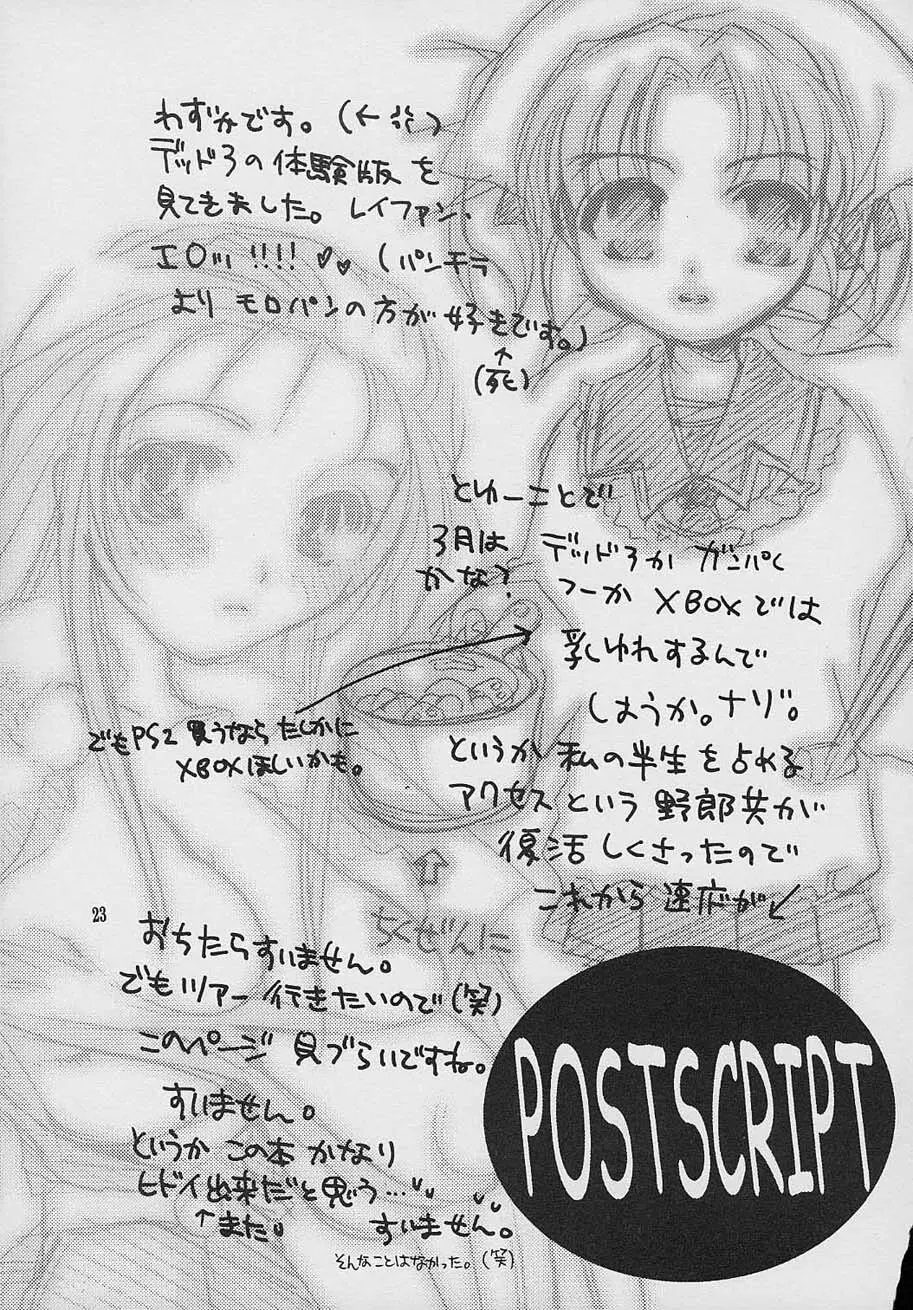 わずかです。(←
デッド3の体験版を
見てきました。レイファン、
エロッ!!!!♡♡(パンチラ
よりモロパンの方が好きです。)
↑
(死)
とゆーことで
3月は
かな?
デッド3か ガンパく
フーか XBOXでは
乳しゆれするんで
しょうか。ナゾ。
でもPS2買うならたしかに
XBOXほしいかも。
というか私の半生を占める
アクセスという野郎共が
復活しくさったので
これから速応が↙
ちくぜんに
23
おちたらすいません。
でもツアー行きたいので(笑)
このページ見づらいですね。
すいません。
というかこの本かなり
ヒドイ出来だと思う…
↑また すいません。
そんなことはなかった。(笑)
POSTSCRIPT